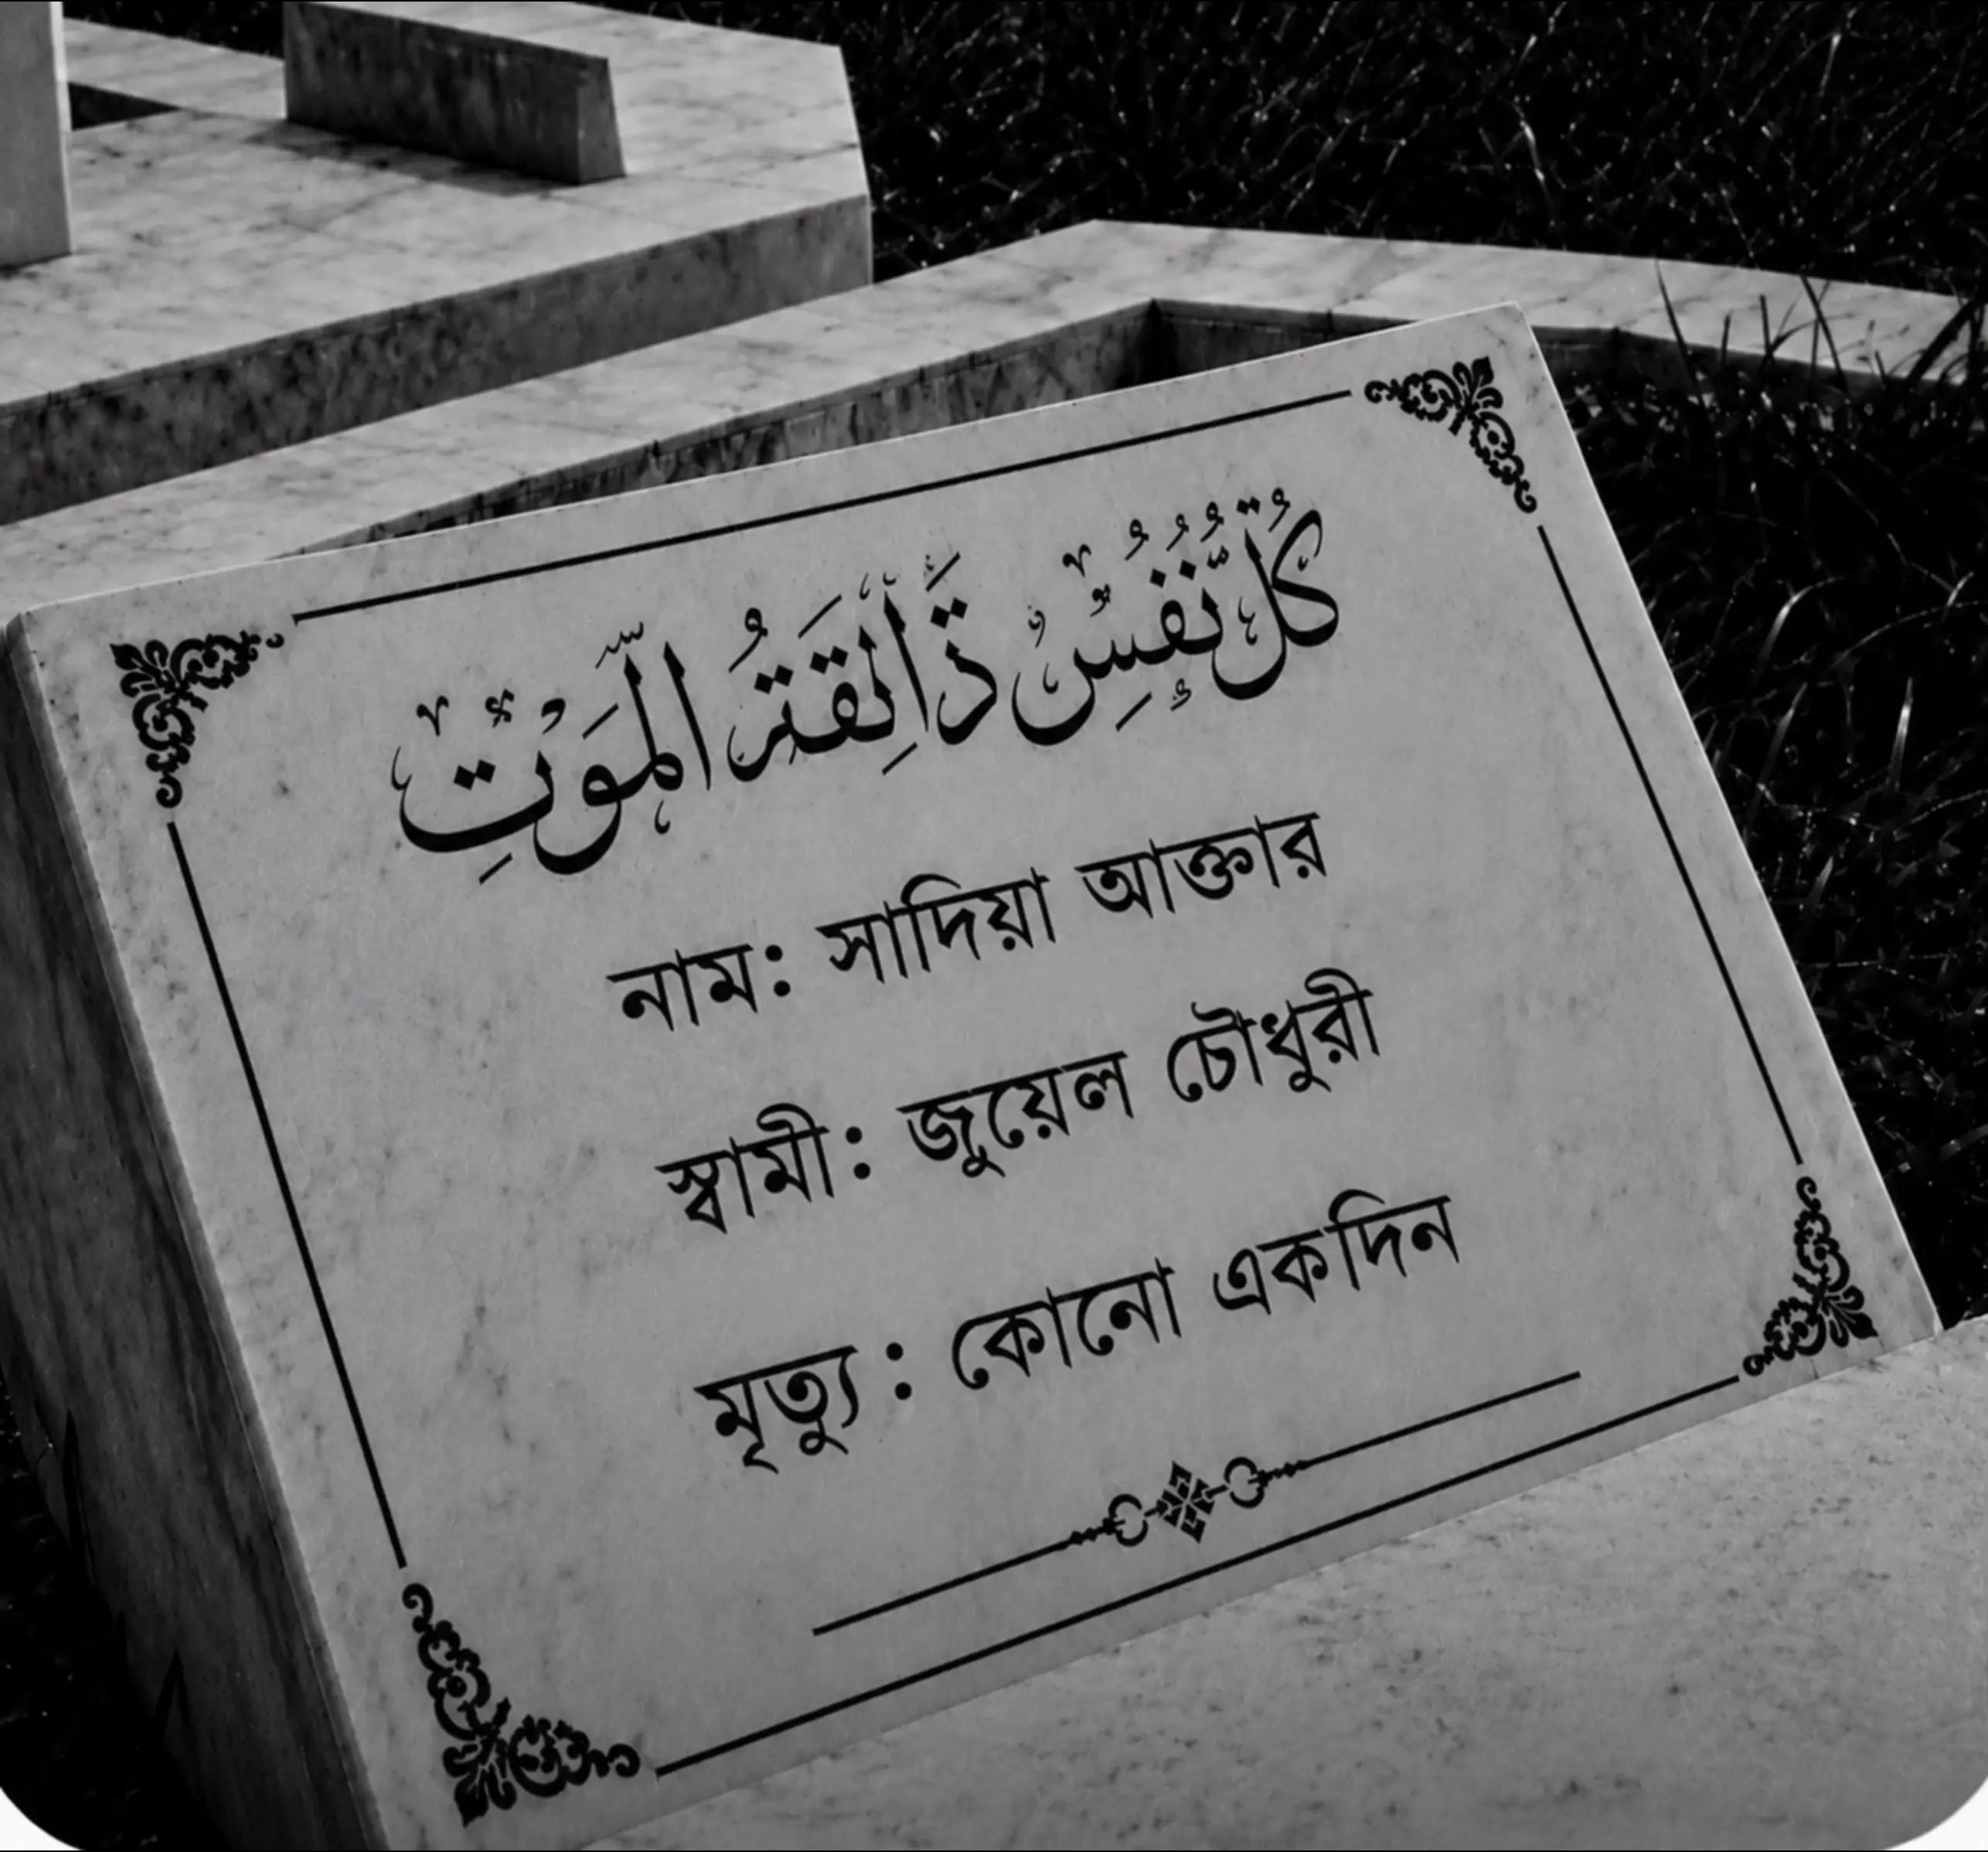 كُلُّ نَفْسٍ ذَائِقَةُ الْمَوْتِ
নাম: সাদিয়া আক্তার
স্বামী: জুয়েল চৌধুরী
মৃত্যু: কোনো একদিন